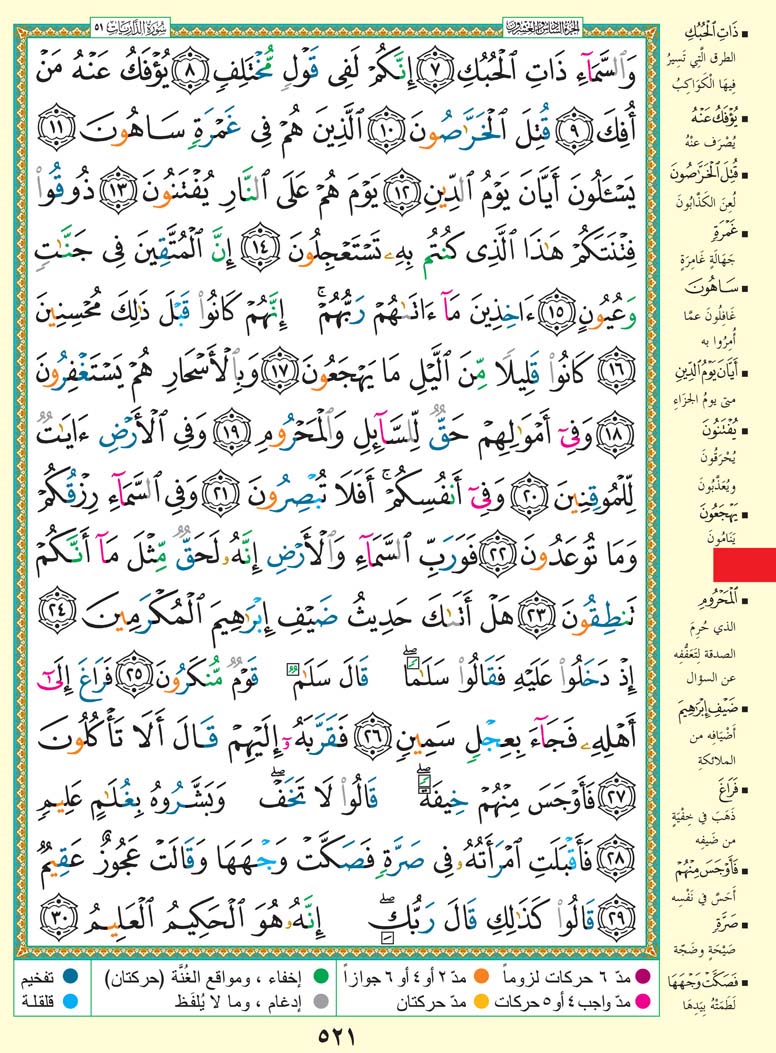 سُورَةُ الذَّارِيَاتِ ٥١
الجُزءُ السَّادِسُ وَالعِشرُونَ
وَٱلسَّمَآءِ ذَاتِ ٱلْحُبُكِ ٧ إِنَّكُمْ لَفِى قَوْلٍ مُّخْتَلِفٍ ٨ يُؤْفَكُ عَنْهُ مَنْ
أُفِكَ ٩ قُتِلَ ٱلْخَرَّٰصُونَ ١٠ ٱلَّذِينَ هُمْ فِى غَمْرَةٍ سَاهُونَ ١١
يَسْـَٔلُونَ أَيَّانَ يَوْمُ ٱلدِّينِ ١٢ يَوْمَ هُمْ عَلَى ٱلنَّارِ يُفْتَنُونَ ١٣ ذُوقُوا۟
فِتْنَتَكُمْ هَٰذَا ٱلَّذِى كُنتُم بِهِۦ تَسْتَعْجِلُونَ ١٤ إِنَّ ٱلْمُتَّقِينَ فِى جَنَّٰتٍ
وَعُيُونٍ ١٥ ءَاخِذِينَ مَآ ءَاتَىٰهُمْ رَبُّهُمْ ۚ إِنَّهُمْ كَانُوا۟ قَبْلَ ذَٰلِكَ مُحْسِنِينَ
١٦ كَانُوا۟ قَلِيلًا مِّنَ ٱلَّيْلِ مَا يَهْجَعُونَ ١٧ وَبِٱلْأَسْحَارِ هُمْ يَسْتَغْفِرُونَ
١٨ وَفِىٓ أَمْوَٰلِهِمْ حَقٌّ لِّلسَّآئِلِ وَٱلْمَحْرُومِ ١٩ وَفِى ٱلْأَرْضِ ءَايَٰتٌ
لِّلْمُوقِنِينَ ٢٠ وَفِىٓ أَنفُسِكُمْ ۚ أَفَلَا تُبْصِرُونَ ٢١ وَفِى ٱلسَّمَآءِ رِزْقُكُمْ
وَمَا تُوعَدُونَ ٢٢ فَوَرَبِّ ٱلسَّمَآءِ وَٱلْأَرْضِ إِنَّهُۥ لَحَقٌّ مِّثْلَ مَآ أَنَّكُمْ
تَنطِقُونَ ٢٣ هَلْ أَتَىٰكَ حَدِيثُ ضَيْفِ إِبْرَٰهِيمَ ٱلْمُكْرَمِينَ ٢٤
إِذْ دَخَلُوا۟ عَلَيْهِ فَقَالُوا۟ سَلَٰمًا ۖ قَالَ سَلَٰمٌ قَوْمٌ مُّنكَرُونَ ٢٥ فَرَاغَ إِلَىٰٓ
أَهْلِهِۦ فَجَآءَ بِعِجْلٍ سَمِينٍ ٢٦ فَقَرَّبَهُۥٓ إِلَيْهِمْ قَالَ أَلَا تَأْكُلُونَ
٢٧ فَأَوْجَسَ مِنْهُمْ خِيفَةً ۖ قَالُوا۟ لَا تَخَفْ ۖ وَبَشَّرُوهُ بِغُلَٰمٍ عَلِيمٍ
٢٨ فَأَقْبَلَتِ ٱمْرَأَتُهُۥ فِى صَرَّةٍ فَصَكَّتْ وَجْهَهَا وَقَالَتْ عَجُوزٌ عَقِيمٌ
٢٩ قَالُوا۟ كَذَٰلِكِ قَالَ رَبُّكِ ۖ إِنَّهُۥ هُوَ ٱلْحَكِيمُ ٱلْعَلِيمُ ٣٠
■ ذَاتِ ٱلْحُبُكِ
الطرق الَّتِي تَسِيرُ
فِيهَا الْكَوَاكِبُ
■ يُؤْفَكُ عَنْهُ
يُصْرَفُ عَنْهُ
■ قُتِلَ ٱلْخَرَّٰصُونَ
لُعِنَ الكَذَّابُونَ
■ غَمْرَةٍ
جَهَالَةٍ غَامِرَةٍ
■ سَاهُونَ
غَافِلُونَ عمَّا
أُمِرُوا به
■ أَيَّانَ يَوْمُ ٱلدِّينِ
متى يومُ الجَزَاءِ
■ يُفْتَنُونَ
يُحْرَقُونَ
ويُعَذَّبُونَ
■ يَهْجَعُونَ
يَنَامُونَ
■ ٱلْمَحْرُومِ
الذي حُرِمَ
الصدقة لتَعَفُّفِه
عن السؤال
■ ضَيْفِ إِبْرَٰهِيمَ
أَضْيَافِه من
الملائكةِ
■ فَرَاغَ
ذَهَبَ في خِفْيَةٍ
من ضَيفِه
■ فَأَوْجَسَ مِنْهُمْ
أَحَسَّ في نَفْسِه
■ صَرَّةٍ
صَيْحَةٍ وضَجَّة
■ فَصَكَّتْ وَجْهَهَا
لَطَمَتْهُ بِيَدِهَا
مدّ ٦ حركات لزوماً
مدّ ٢ أو ٤ أو ٦ جوازاً
إخفاء ، ومواقع الغُنَّة (حركتان)
تفخيم
مدّ واجب ٤ أو ٥ حركات
مدّ حركتان
إدغام ، وما لا يُلفَظ
قلقلة
٥٢١